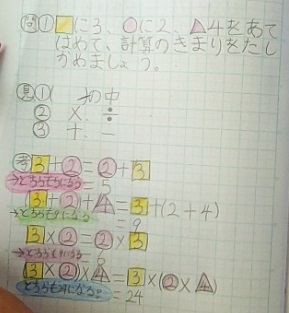 問① □に3、○に2、△4をあて
はめて、計算のきまりをたし
かめましょう。
① ( )の中
② ×、÷
③ +、－
考 3+2=2+3
→どちらも5になる =5
(3+2)+4=3+(2+4)
→どちらも9になる =9
3×2=2×3
→どちらも6になる =6
(3×2)×4=3×(2×4)
→どちらも24になる。=24